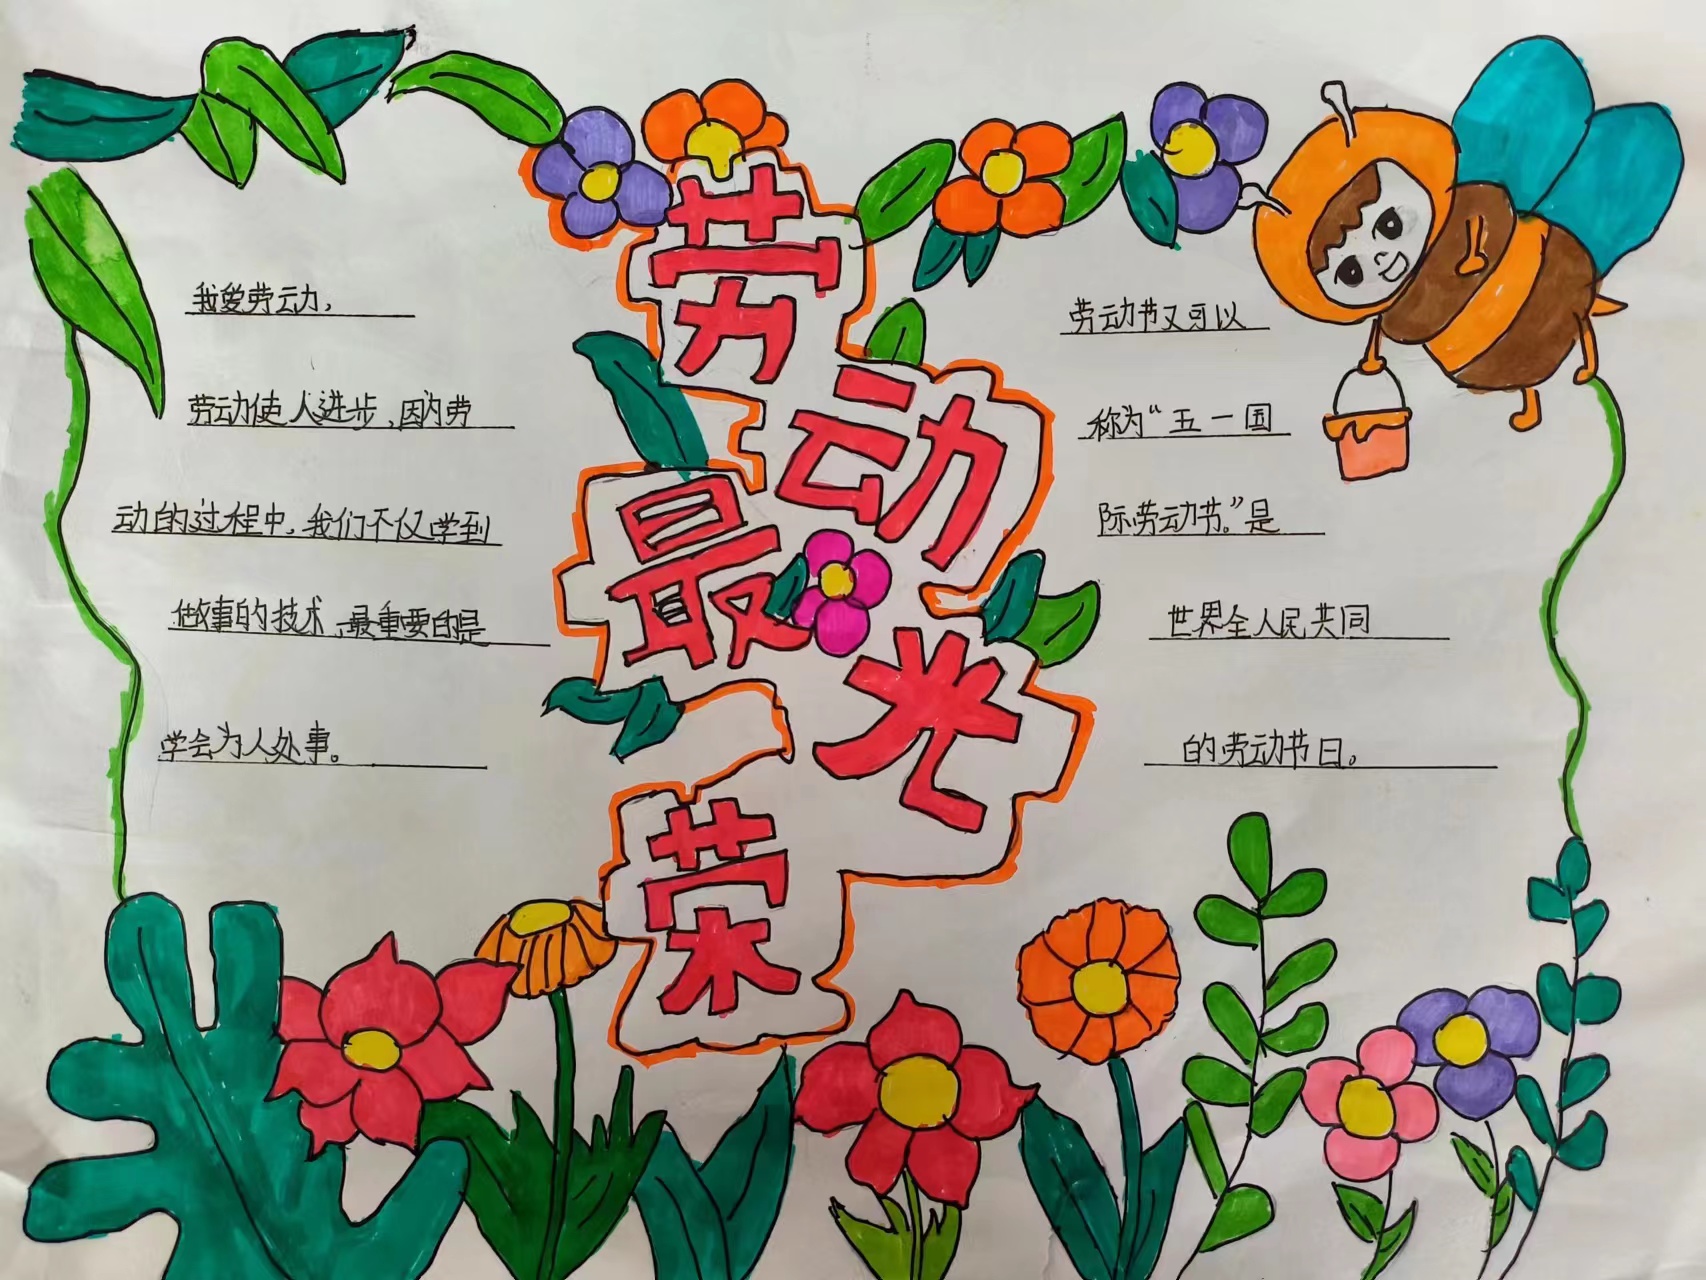 劳动最光荣
我爱劳动,
劳动使人进步,因为劳
动的过程中,我们不仅学到
做事的技术,最重要的是
学会为人处事。
劳动节又可以
称为“五一国
际劳动节。”是
世界全人民共同
的劳动节日。